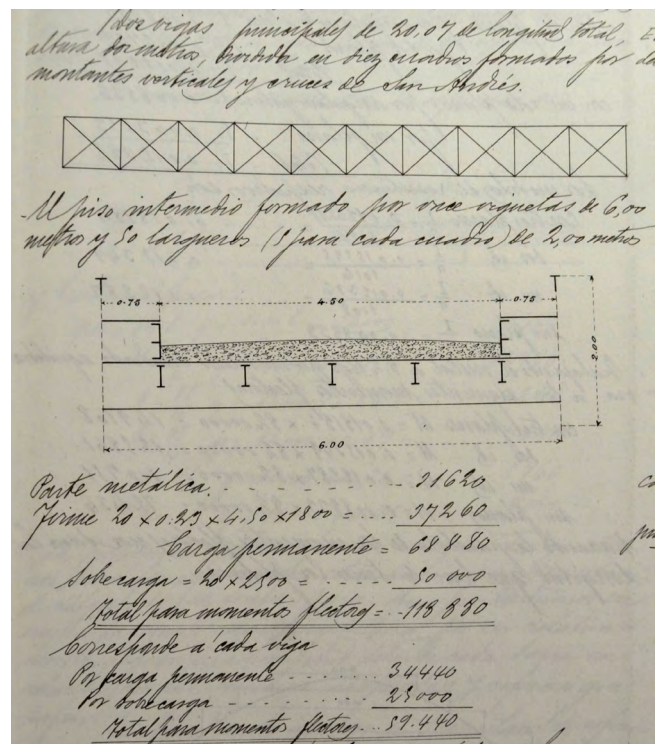 Dos vigas principales de 20,07 de longitud total,
altura dos metros, dividida en diez cuadros formados por
montantes verticales y cruces de San Andrés.
-Un piso intermedio formado por once viguetas de 6,00
metros y 50 largueros (5 para cada cuadro) de 2,00 metros
0.75 4.50 0.75
2.00
6.00
Parte metálica. - - - - - - - - 31620
Firme 20 x 0.23 x 4.50 x 1800 = .... 37260
Carga permanente = 68880
Sobrecarga = 20 x 2500 = - - - - - 50 000
Total para momentos flectores = -118 880
Corresponde á cada viga
Por carga permanente - - - - - - 34440
Por sobrecarga - - - - - - - - 25000
Total para momentos flectores ... 59.440